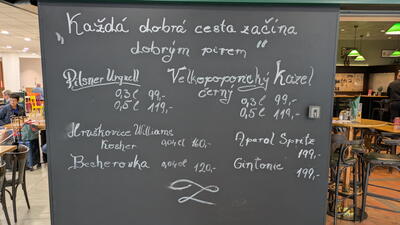 „Každá dobrá cesta začína
dobrým pivem“
Pilsner Urquell
0,3 l 99,-
0,5 l 119,-
Velkopoponický Kozel
černý
0,3 l 99,-
0,5 l 119,-
Hruškovice Williams
Kosher 0,04 cl 160,-
Becherovka 0,04 cl 120,-
Aparol Spritz
199,-
Gintonic
199,-